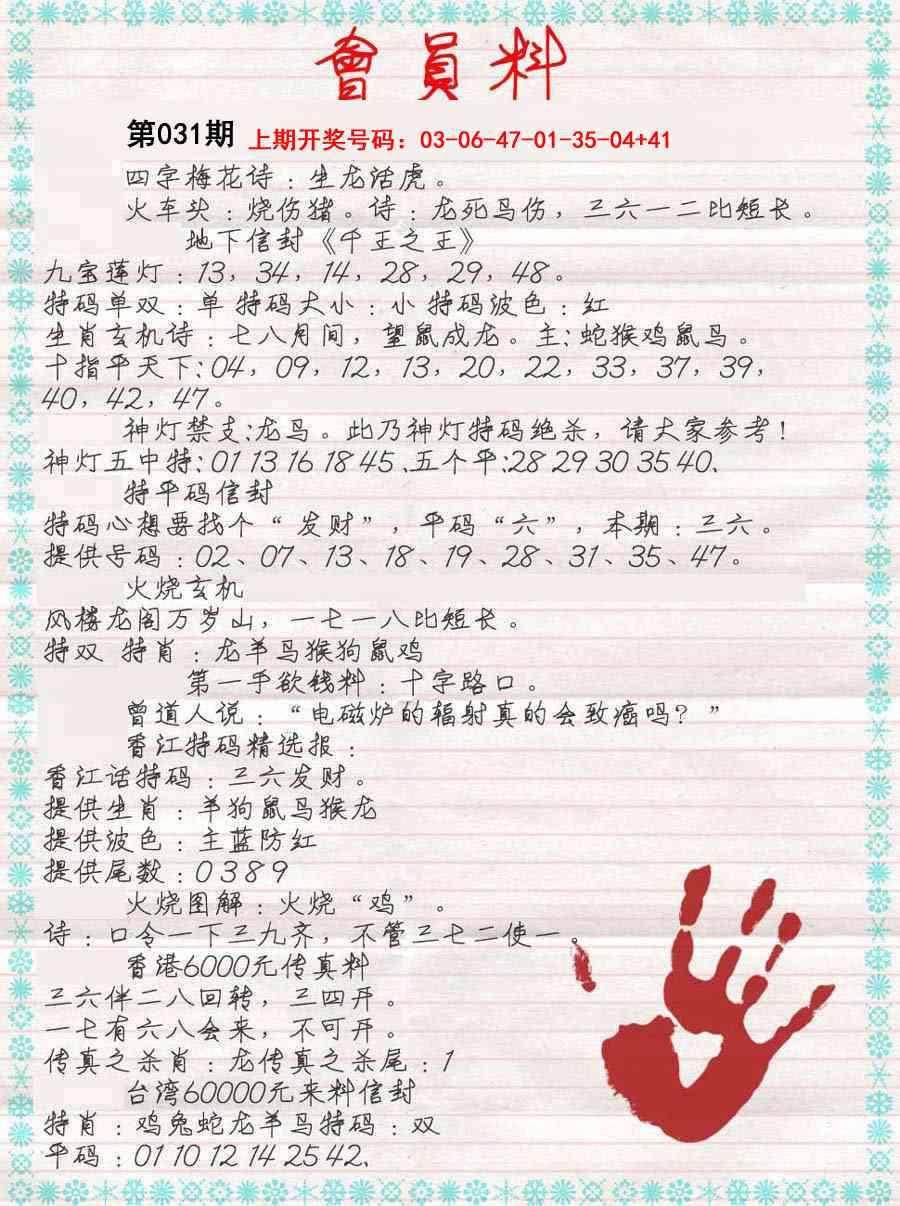 會員料
第031期 上期开奖号码：03-06-47-01-35-04+41
四字梅花诗：生龙活虎。
火车头：烧伤猪。诗：龙死鸟伤，三六一二比短长。
地下信封《千王之王》
九宝莲灯：13，34，14，28，29，48。
特码单双：单 特码大小：小 特码波色：红
生肖玄机诗：七八月间，望鼠成龙。主：蛇猴鸡鼠鸟。
十指平天下：04，09，12，13，20，22，33，37，39，
40，42，47。
神灯禁支：龙鸟。此乃神灯特码绝杀，请大家参考！
神灯五中特：01 13 16 18 45、五个平：28 29 30 35 40、
特平码信封
特码心想要找个“发财”，平码“六”，本期：三六。
提供号码：02、07、13、18、19、28、31、35、47。
火烧玄机
风楼龙阁万岁山，一七一八比短长。
特双 特肖：龙羊鸟猴狗鼠鸡
第一手欲钱料：十字路口。
曾道人说：“电磁炉的辐射真的会致癌吗？”
香江特码精选报：
香江话特码：三六发财。
提供生肖：羊狗鼠鸟猴龙
提供波色：主蓝防红
提供尾数：0 3 8 9
火烧图解：火烧“鸡”。
诗：口令一下三九齐，不管三七二使一。
香港6000元传真料
三六伴二八回转，三四开。
一七有六八会来，不可开。
传真之杀肖：龙传真之杀尾：1
台湾60000元来料信封
特肖：鸡兔蛇龙羊鸟特码：双
平码：01 10 12 14 25 42、